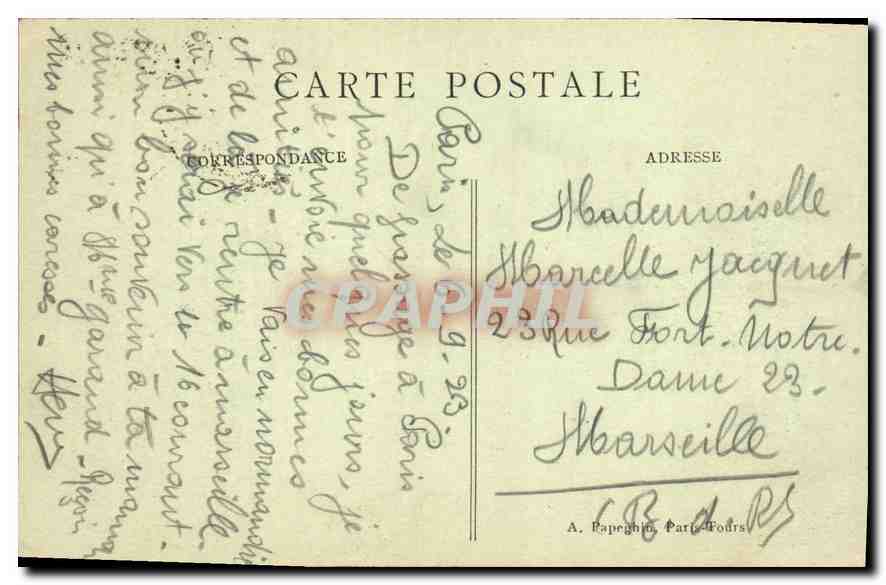 CARTE POSTALE
CORRESPONDANCE
ADRESSE
Paris, Le 6. 9. 23.
De passage à Paris
pour quelques jours, je
t'envoie mes bonnes
amitiés - je vais en normandie
et de là je rentre à marseille
où j'y serai vers le 16 courant.
bon souvenir à ta maman
ainsi qu'à Mme garaud - Reçois
mes bonnes caresses -
Mademoiselle
Marcelle Jacquet
23 Rue Fort. Notre.
Dame 23.
Marseille
(B. d. R)
A. Papeghin, Paris-Tours
CPAPHIL